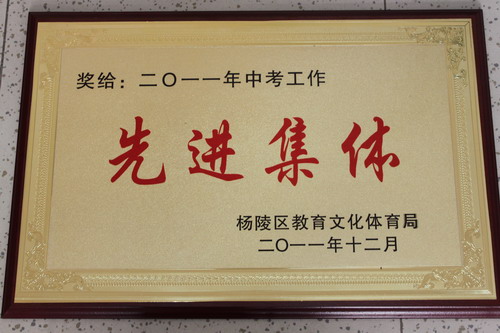 奖给：二〇一一年中考工作
先进集体
杨陵区教育文化体育局
二〇一一年十二月